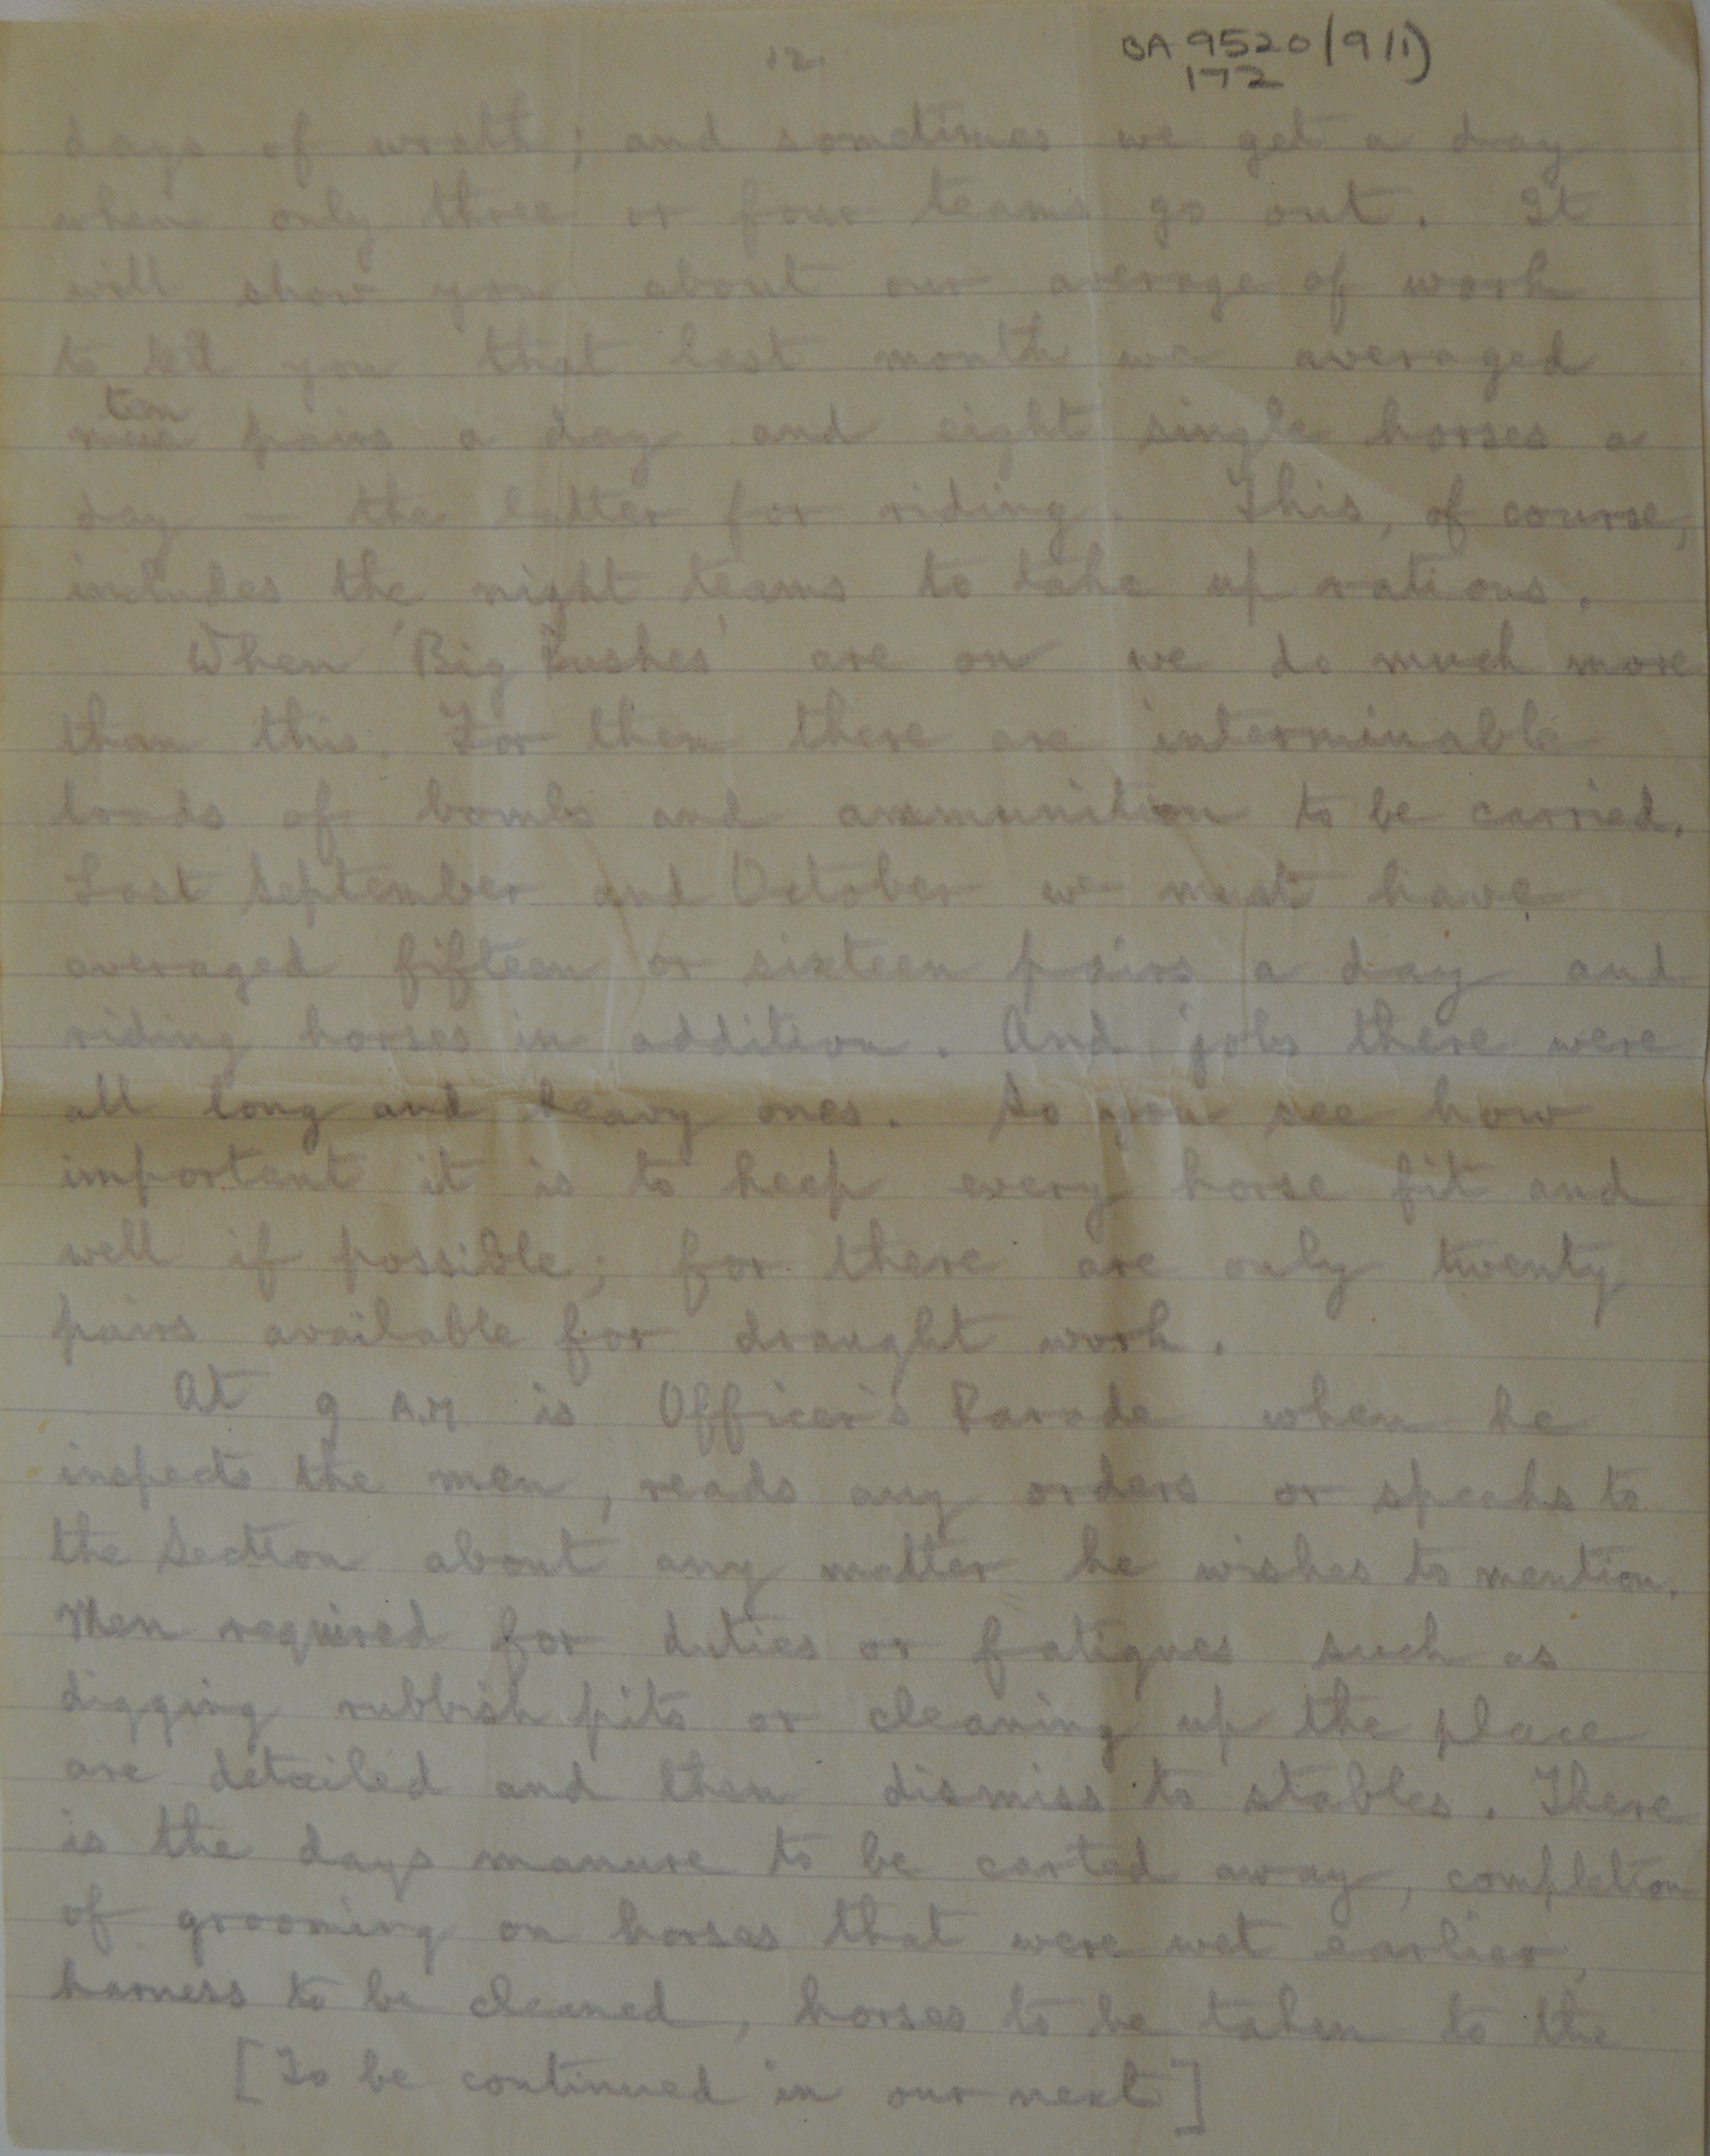 12.
BA 9520/9/1)
172
days of wrath; and sometimes we get a day
when only three or four teams go out. It
will show you about our average of work
to tell you that last month we averaged
ten
nine pairs a day and eight single horses a
day — the latter for riding. This, of course,
includes the night teams to take up rations.
When 'Big Pushes' are on we do much more
than this. For then there are interminable
loads of bombs and ammunition to be carried.
Last September and October we must have
averaged fifteen or sixteen pairs a day and
riding horses in addition. And jobs there were
all long and heavy ones. So you see how
important it is to keep every horse fit and
well if possible; for there are only twenty
pairs available for draught work.
At 9 A.M. is Officer's Parade when he
inspects the men, reads any orders or speaks to
the Section about any matter he wishes to mention.
Men required for duties or fatigues such as
digging rubbish pits or cleaning up the place
are detailed and then dismiss to stables. There
is the days manure to be carted away, completion
of grooming on horses that were wet earlier,
harness to be cleaned, horses to be taken to the
[To be continued in our next]